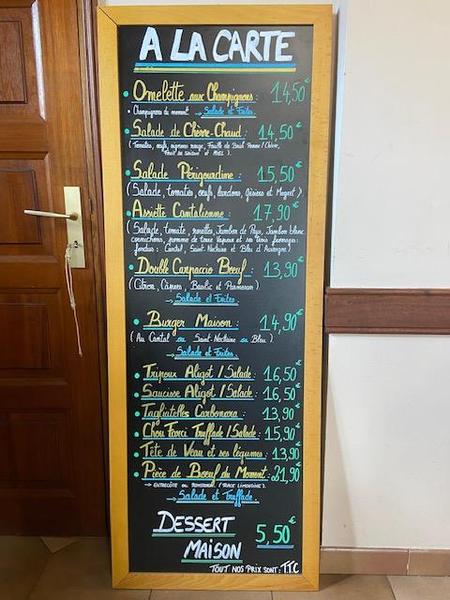 A LA CARTE
• Omelette aux Champignons : 14,50€
• Champignons du moment → Salade et Frites.
• Salade de Chèvre-Chaud : 14,50€
(Tomates, œufs, oignons rouge, Feuille de Brick Pomme/Chèvre,
Fruit de saison et Miel).
• Salade Périgourdine : 15,50€
(Salade, tomates, œufs, lardons, gésiers et Magret)
• Assiette Cantalienne : 17,90€
(Salade, tomate, rosettes, Jambon de Pays, Jambon blanc
cornichons, pomme de terre vapeur et ses trois fromages
fondues : Cantal, Saint-Nectaire et Bleu d'Auvergne)
• Double Carpaccio Bœuf : 13,90€
(Citron, Câpres, Basilic et Parmesan)
→ Salade et Frites.
• Burger Maison : 14,90€
(Au Cantal ou Saint-Nectaire ou Bleu)
→ Salade et Frites.
• Tripoux Aligot / Salade : 16,50€
• Saucisse Aligot / Salade : 16,50€
• Tagliatelles Carbonara : 13,90€
• Chou Farci Truffade / Salade : 15,90€
• Tête de Veau et ses légumes : 13,90€
• Pièce de Bœuf du Moment : 21,90€
→ ENTRECÔTE OU (RACE LIMOUSINE).
→ Salade et Truffade.
DESSERT
MAISON 5,50€
TOUT NOS PRIX SONT : T.T.C